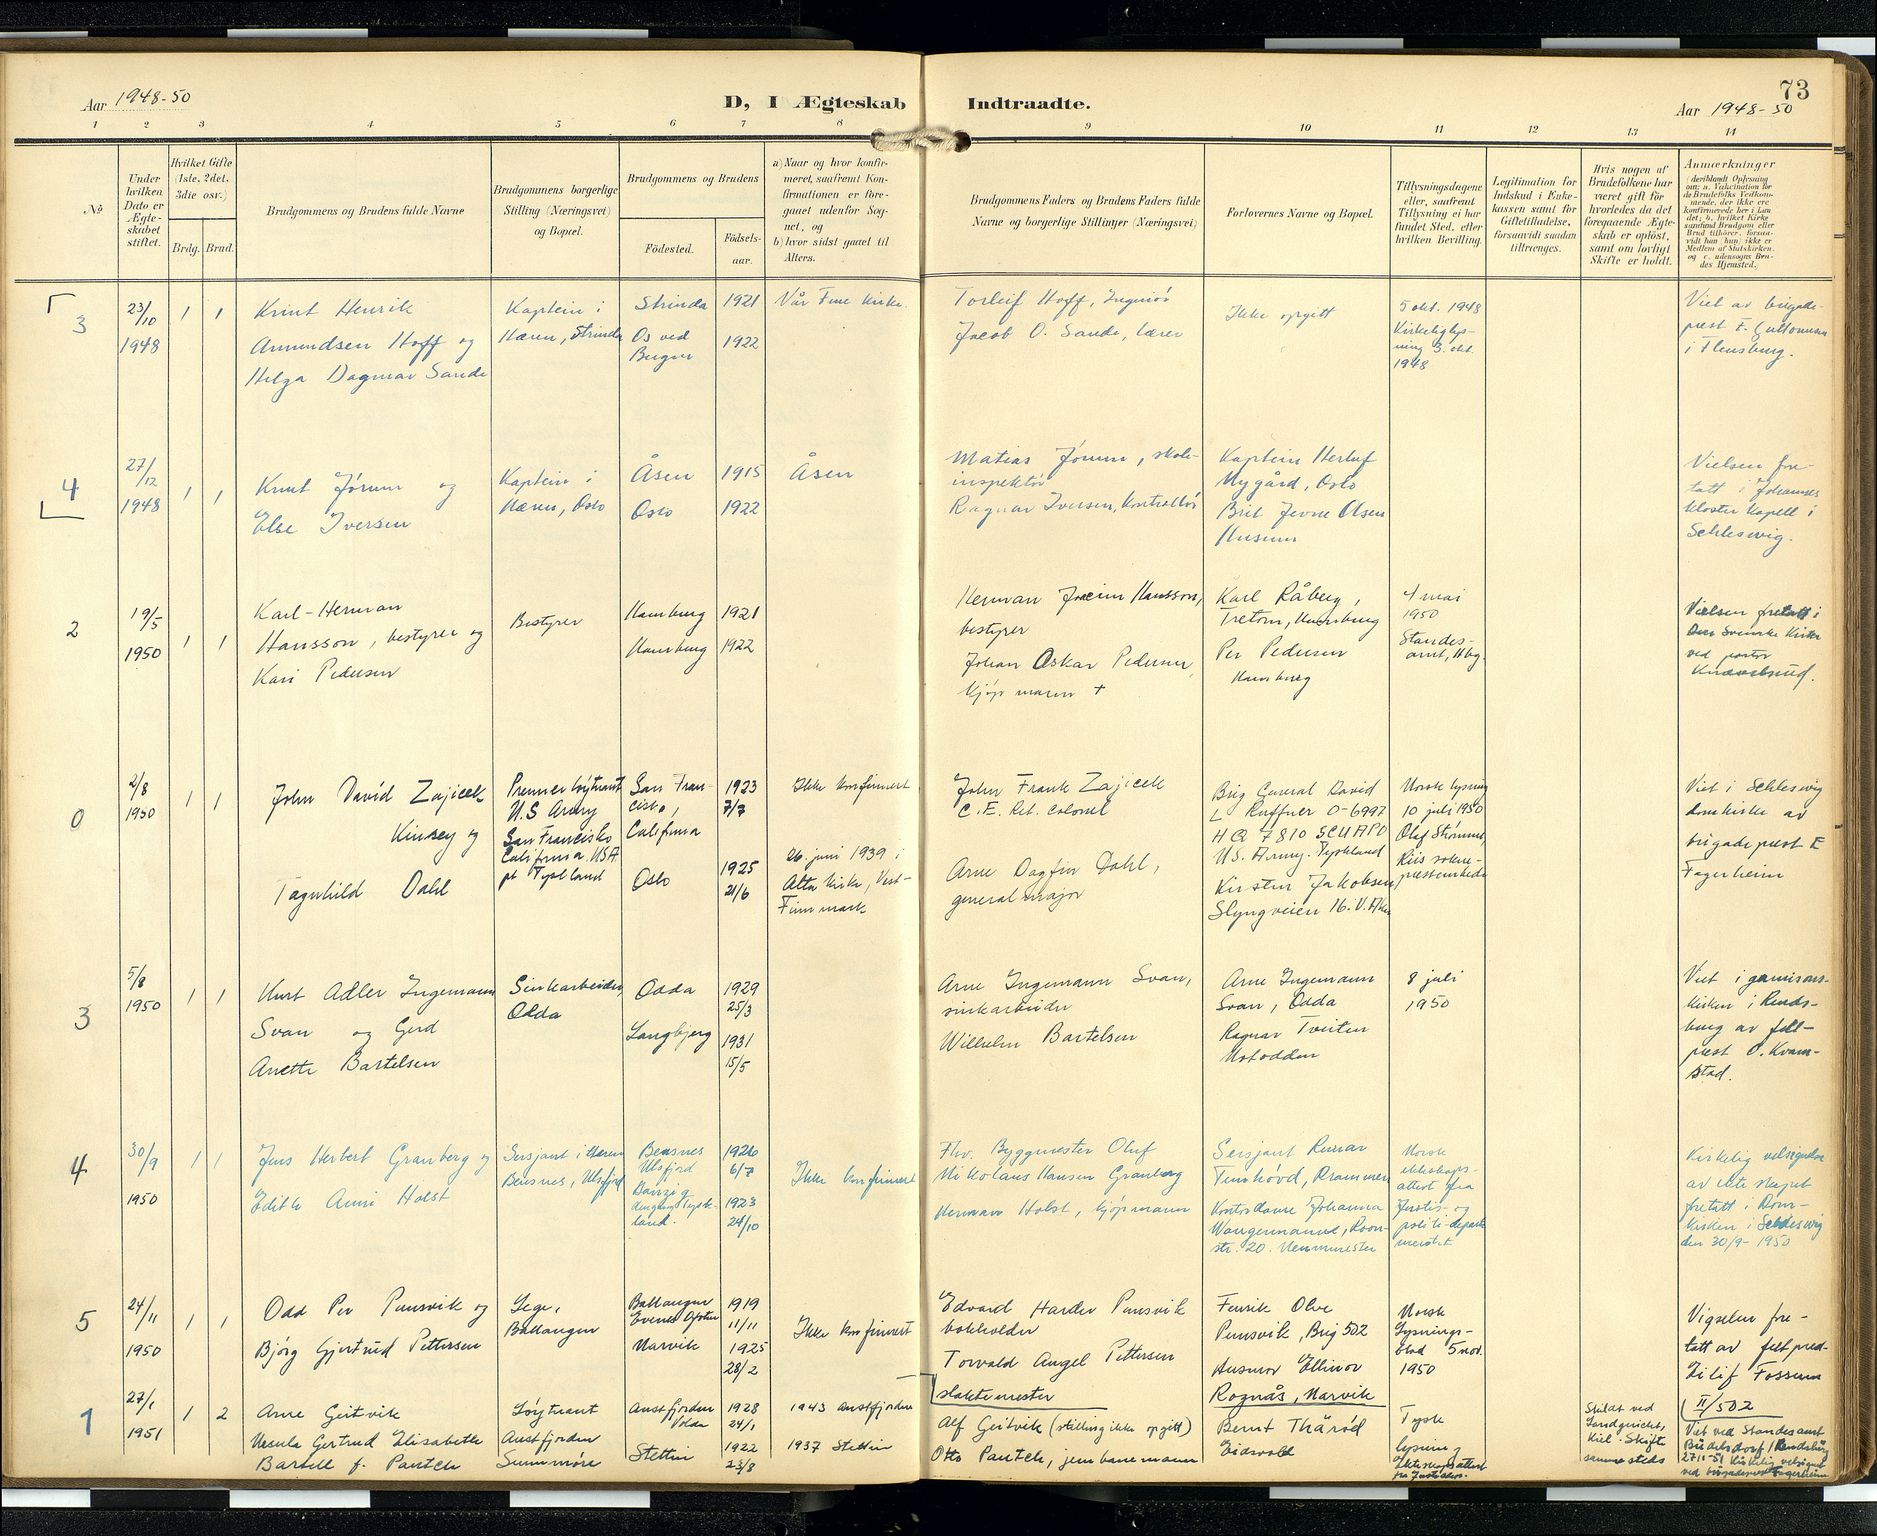 Aar 1948-50
D, I Ægteskab
Indtraadte.
73
Aar 1948-50
1 2 3 4 5 6 7 8 9 10 11 12 13 14
No
Under
hvilken
Dato er
Ægte-
skabet
stiftet.
Hvilket Gifte
(1ste, 2det,
3die osv.)
Brdg. Brud.
Brudgommens og Brudens fulde Navne
Brudgommens borgerlige
Stilling (Næringsvei)
og Bopæl.
Brudgommens og Brudens
Födested.
Födsels-
aar.
a) Naar og hvor konfir-
meret, saafremt Kon-
firmationen er fore-
gaaet udenfor Sog-
net, og
b) hvor sidst gaaet til
Alters.
Brudgommens Faders og Brudens Faders fulde
Navne og borgerlige Stillinger (Næringsvei)
Forlovernes Navne og Bopæl.
Tillysningsdagene
eller, saafremt
Tillysning ei har
fundet Sted, efter
hvilken Bevilling.
Legitimation for
Indskud i Enke-
kassen samt for
Giftetilladelse,
forsaavidt saadan
tiltrænges.
Hvis nogen af
Brudefolkene har
været gift før
hvorledes da det
foregaaende Ægte-
skab er opløst,
samt om lovligt
Skifte er holdt.
Anmærkninger
(deriblandt Oplysning
om: a. Vakcination for
de Brudefolks Vedkom-
mende, der ikke ere
konfirmerede her i Lan-
det; b. hvilket Kirke-
samfund Brudgom eller
Brud tilhører, forsaa-
vidt han (hun) ikke er
Medlem af Statskirken,
og c. udensogns Bru-
des Hjemsted.)
3
23/10
1948
1 1
Knut Henrik
Amundsen Hoff og
Helga Dagmar Sande
Kaptein i
Hæren, Strinda
Strinda 1921
Os ved
Bergen
1922
Vår Frue Kirke.
Torleif Hoff, Ingeniør
Jacob O. Sande, lærer
Ikke opgitt
5 okt. 1948
Kirkelig lys-
ning 3. okt.
1948
Viet av brigade-
prest F. Guttormsen
i Flensburg.
4
27/12
1948
1 1
Knut Jørum og
Else Iversen
Kaptein i
Hæren, Oslo
Åsen 1915
Oslo 1922
Åsen
Matias Jørum, skole-
inspektør
Ragnar Iversen, Kontrollør
Kaptein Herluf
Nygård, Oslo
Brit Jevne Olsen
Husum
Vielsen fore-
tatt i Johannes
kloster Kapell i
Schleswig.
2
19/5
1950
1 1
Karl-Herman
Hansson, bestyrer og
Kari Pedersen
Bestyrer
Hamburg 1921
Hamburg 1922
Herman Joacim Hansson,
bestyrer
Johan Oskar Pedersen,
kjøpmann +
Karl Råberg,
Tretom, Hamburg
Per Pedersen
Hamburg
4 mai
1950
Standes-
amt, Hbg.
Vielsen foretatt i
Den Svenske Kirke
ved pastor
0
2/8
1950
1 1
John David Zajicek
Kinsey og
Tagnhild Dahl
Premierløytnant
U.S Army
San Francisko
California, USA
pt Tyskland
San Fran-
cisko,
California
Oslo
1923
7/7
1925
21/6
Ikke konfirmert
26. juni 1939 i
Alta Kirke, Vest-
Finnmark
John Frank Zajicek
C.E. Ret. Colonel
Arne Dagfin Dahl,
generalmajor
Brig General David
L Ruffner O-6997
HQ 7810 SCU APO
US. Army. Tyskland
Kirsten Jakobsen,
Slyngveien 16. V. Aker
Norsk lysning
10 juli 1950
Olaf Strømme,
Riis sokne-
prestembede
Viet i Schleswig
domkirke av
brigadeprest E
Fagerheim
3
5/8
1950
1 1
Kurt Adler Ingemann
Svan og Gerd
Anette Bartelsen
Sinkarbeider,
Odda
Odda
Langbjerg
1929
25/3
1931
15/5
Arne Ingemann Svan,
sinkarbeider
Wilhelm Bartelsen
Arne Ingemann
Svan, Odda
Ragnar Tveiten
Notodden
8 juli
1950
Viet i garnisons-
kirken i Rends-
burg av felt-
prest O. Kvam-
stad.
4
30/9
1950
1 1
Jens Herbert Granberg og
Edith Anni Holst
Sersjant i Hæren
Bensnes, Ulsfjord
Bensnes
Ulsfjord
Danzig
land.
1926
6/7
1923
24/10
Ikke konfirmert
Fhv. Byggmester Oluf
Nikolaus Hansen Granberg
Herman Holst, kjøpmann
Sersjant Reinar
Drammen
Kontordame Johanna
Wangermannd, Roon-
str. 20. Neumünster
Norsk
ekteskaps-
attest fra
Justis- og
politi-departe
mentet
Kirkelig velsignelse
av ekteskapet
foretatt i Dom-
kirken i Schleswig
den 30/9-1950
5
24/11
1950
1 1
Odd Per Punsvik og
Bjørg Gjertrud Pettersen
Lege,
Ballangen
Ballangen
Evenes Ofoten
Narvik
1919
11/11
1925
28/2
Ikke konfirmert
Edvard Harder Punsvik
bokholder
Torvald Angel Pettersen
slaktemester
Fenrik Olve
Punsvik, Brig 502
Husmor Ellinor
Roznås, Narvik
Norsk
Lysnings-
blad 5 nov.
1950
Vigselen fore-
tatt av feltpred-
Eilif Fossum
II/502
1
27/1
1951
1 2
Arne Geitvik
Ursula Gertrud Elisabeth
Bartell f. Pantch
Løytnant
Austfjorden
Sunnmøre
Austfjorden
Volda
Stettin
1928
24/1
1922
23/8
1943 Austfjorden
1937 Stettin
Alf Geitvik (stilling ikke opgitt)
Otto Pantch, jernbanemann
Bernt Thårød
Eidsvold
Tysk
lysning
ekteskapsattest
fra Justisdep.
Skilt ved
Landgericht,
Kiel. Skifte
samme steds
Viet ved Standesamt
Büdelsdorf/Rendsburg
27/1-51 Kirkelig velsignet
ved brigadeprest Fagerheim